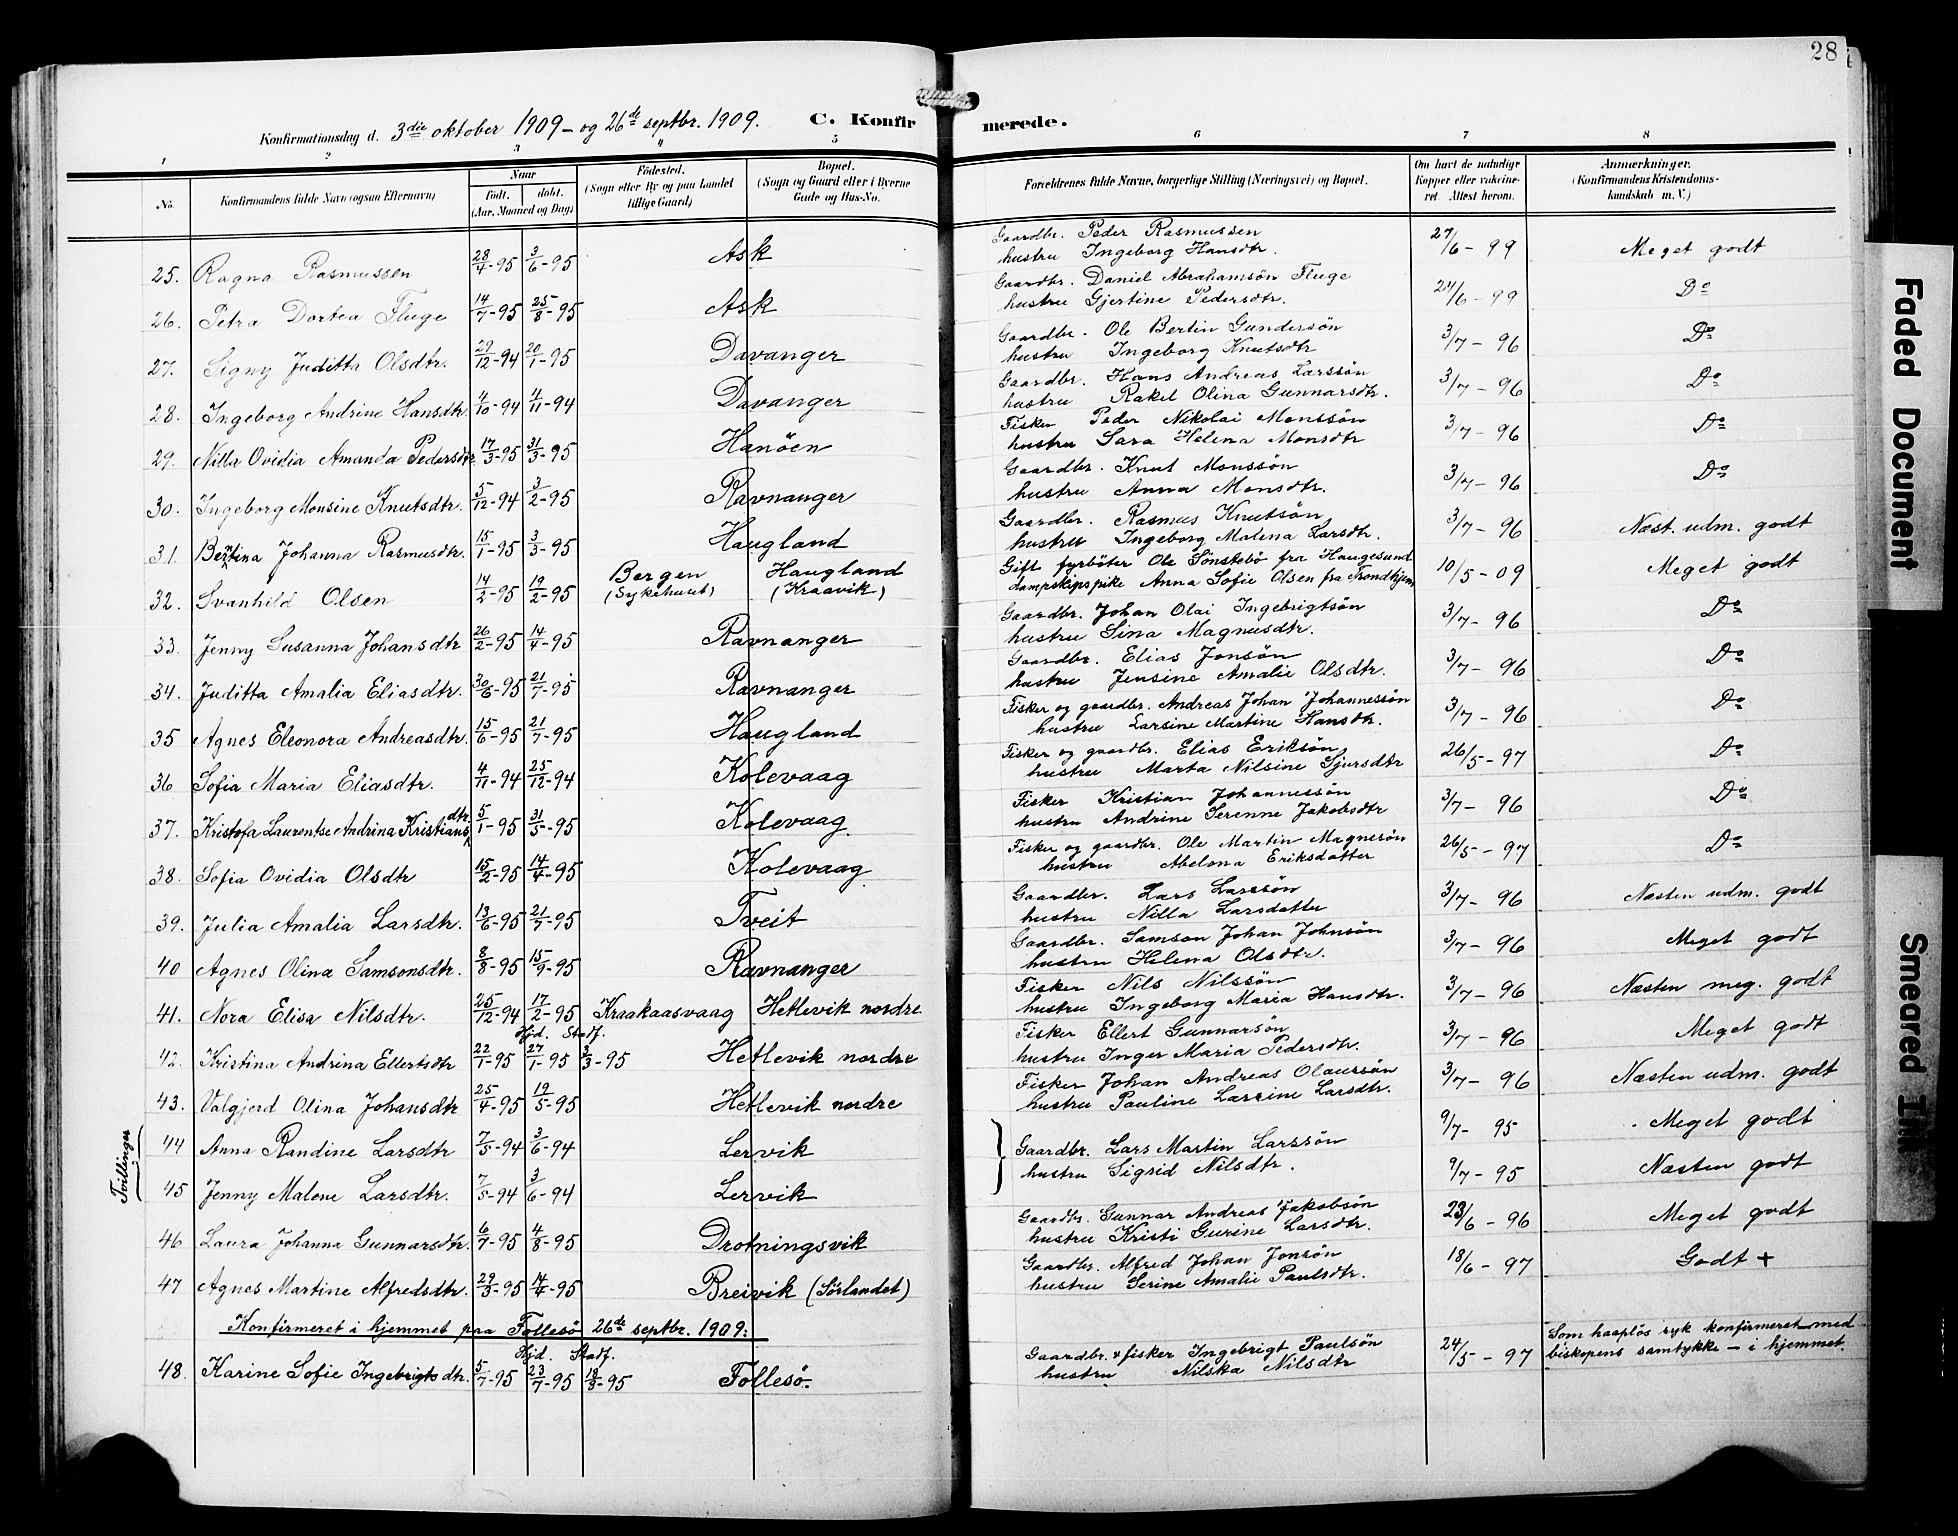 28
Konfirmationsdag d. 3die oktober 1909 – og 26de septbr. 1909. C. Konfirmerede.
1 2 3 4 5 6 7 8
No. Konfirmandens fulde Navn (ogsaa Efternavn) Naar født. døbt. (Aar, Maaned og Dag) Fødested. (Sogn eller By og paa Landet tillige Gaard) Bopæl. (Sogn og Gaard eller i Byerne Gade og Hus-No. Forældrenes fulde Navne, borgerlige Stilling (Næringsvei) og Bopæl. Om havt de naturlige Kopper eller vaccineret. Attest herom. Anmærkninger. (Konfirmandens Kristendomskundskab m. V.)
25. Ragna Rasmussen 28/4-95 3/6-95 Ask Gaardbr. Peder Rasmussen hustru Ingeborg Hansdtr. 27/6 - 99 Meget godt
26. Petra Dortea Fluge 14/7-95 25/8-95 Ask Gaardbr. Daniel Abrahamsön Fluge hustru Gjertine Pedersdtr. 27/6 - 99 Do
27. Signy Juditta Olsdtr. 29/12-94 20/1-95 Davanger Gaardbr. Ole Bertin Gundersön hustru Ingeborg Knutsdtr 3/7 - 96 Do
28. Ingeborg Andrine Hansdtr. 4/10-94 4/11-94 Davanger Gaardbr. Hans Andreas Larssön hustru Rakel Olina Gunnarsdtr. 3/7 - 96 Do
29. Nilla Ovidia Amanda Pedersdtr 17/3-95 31/3-95 Hanöen Fisker Peder Nikolai Monssön hustru Sara Helena Monsdtr 3/7 - 96 Do
30. Ingeborg Monsine Knutsdtr. 5/12-94 3/2-95 Ravnanger Gaardbr. Knut Monssön hustru Anna Monsdtr. 3/7 - 96 Do
31. Bertina Johanna Rasmusdtr. 15/1-95 3/3-95 Haugland Gaardbr. Rasmus Knutsön hustru Ingeborg Malena Larsdtr. 3/7 - 96 Næst. udm. godt
32. Svanhild Olsen 14/2-95 19/2-95 Bergen (Sykehuset) Haugland (Kraavik) Gift fyrböter Ole Sönstebö fra Haugesund dampskipspike Anna Sofie Olsen fra Trondhjem 10/5 - 09 Meget godt
33. Jenny Susanna Johansdtr 26/2-95 14/4-95 Ravnanger Gaardbr. Johan Olai Ingebrigtsön hustru Sina Magnusdtr. 3/7 - 96 Do
34. Juditta Amalia Eliasdtr. 30/6-95 21/7-95 Ravnanger Gaardbr. Elias Jonsön hustru Jensine Amalie Olsdtr. 3/7 - 96 Do
35 Agnes Eleonora Andreasdtr. 15/6-95 21/7-95 Haugland Fisker og gaardbr. Andreas Johan Johannessön hustru Larsine Martine Hansdtr. 3/7 - 96 Do
36 Sofia Maria Eliasdtr. 4/11-94 25/12-94 Kolevaag Fisker og gaardbr. Elias Eriksön hustru Marta Nilsine Sjursdtr 26/5 - 97 Do
37. Kristofa Laurentse Andrina Kristiansdtr. 5/1-95 31/5-95 Kolevaag Fisker Kristian Johannessön hustru Andrine Serenne Jakobsdtr 3/7 - 96 Do
38. Sofia Ovidia Olsdtr 15/2-95 14/4-95 Kolevaag Fisker og gaardbr. Ole Martin Magnesön hustru Abelona Eriksdatter 26/5 - 97 Do
39. Julia Amalia Larsdtr. 13/6-95 21/7-95 Tveit Gaardbr. Lars Larssön hustru Nilla Larsdatter 3/7 - 96 Næsten udm. godt
40 Agnes Olina Samsonsdtr. 8/8-95 15/9-95 Ravnanger Gaardbr. Samson Johan Johnsön hustru Helena Olsdtr. 3/7 - 96 Meget godt
41. Nora Elisa Nilsdtr. 25/12-94 17/2-95 Kraakaasvaag Hetlevik nordre Fisker Nils Nilssön hustru Ingeborg Maria Hansdtr. 3/7 - 96 Næsten meg. godt
Hjd. Stadf.
42. Kristina Andrina Ellertsdtr 22/1-95 27/1-95 3/3-95 Hetlevik nordre Fisker Ellert Gunnarsön hustru Inger Maria Pedersdtr. 3/7 - 96 Meget godt
43. Valgjerd Olina Johansdtr 25/4-95 19/5-95 Hetlevik nordre Fisker Johan Andreas Olaussön hustru Pauline Larsine Larsdtr. 3/7 - 96 Næsten udm. godt
Tvillinger
44 Anna Randine Larsdtr 7/5-94 3/6-94 Lervik Gaardbr. Lars Martin Larssön 9/7 - 95 Meget godt
45 Jenny Malene Larsdtr. 7/5-94 3/6-94 Lervik hustru Sigrid Nilsdtr. 9/7 - 95 Næsten godt
46 Laura Johanna Gunnarsdtr. 6/7-95 4/8-95 Drotningsvik Gaardbr. Gunnar Andreas Jakobsön hustru Kristi Gurine Larsdtr. 23/6 - 96 Meget godt
47 Agnes Martine Alfredsdtr. 29/3-95 14/4-95 Breivik (Sörlandet) Gaardbr. Alfred Johan Jonsön hustru Serine Amalie Paulsdtr. 18/6 - 97 Godt +
Konfirmeret i hjemmet paa Follesö 26de septbr. 1909:
Hjd. Stadf.
48. Karine Sofie Ingebrigtsdtr. 5/7-95 23/7-95 18/8-95 Follesö. Gaardbr. + fisker Ingebrigt Paulsön hustru Nilska Nilsdtr 24/5 - 97 Som haaplös syk konfirmeret med biskopens samtykke – i hjemmet.
Faded Document
Smeared Ink